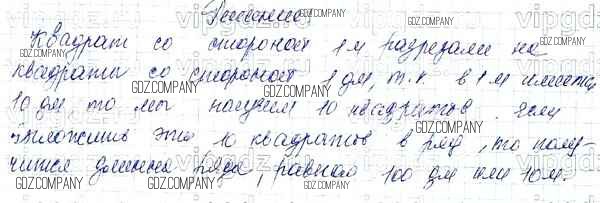 Решение:
Квадрат со стороной 1 м разрезали на
квадраты со стороной 1 дм, т.к. в 1 м имеется
10 дм то мы получим 10 квадратов. Если
выложить эти 10 квадратов в ряд, то полу-
чится длинна ряда, равная 100 дм или 10 м.